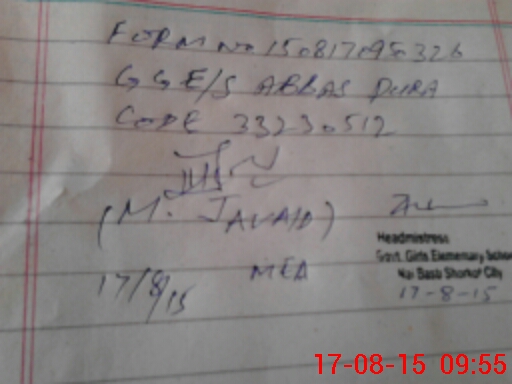 FORM No 1508170950326
GGE/S ABBAS PURA
CODE 33230512
(M. JAVAID)
MEA
17/8/15
Headmistress
Govt. Girls Elementary School
Basti Shorkot City
17-8-15
17-08-15 09:55